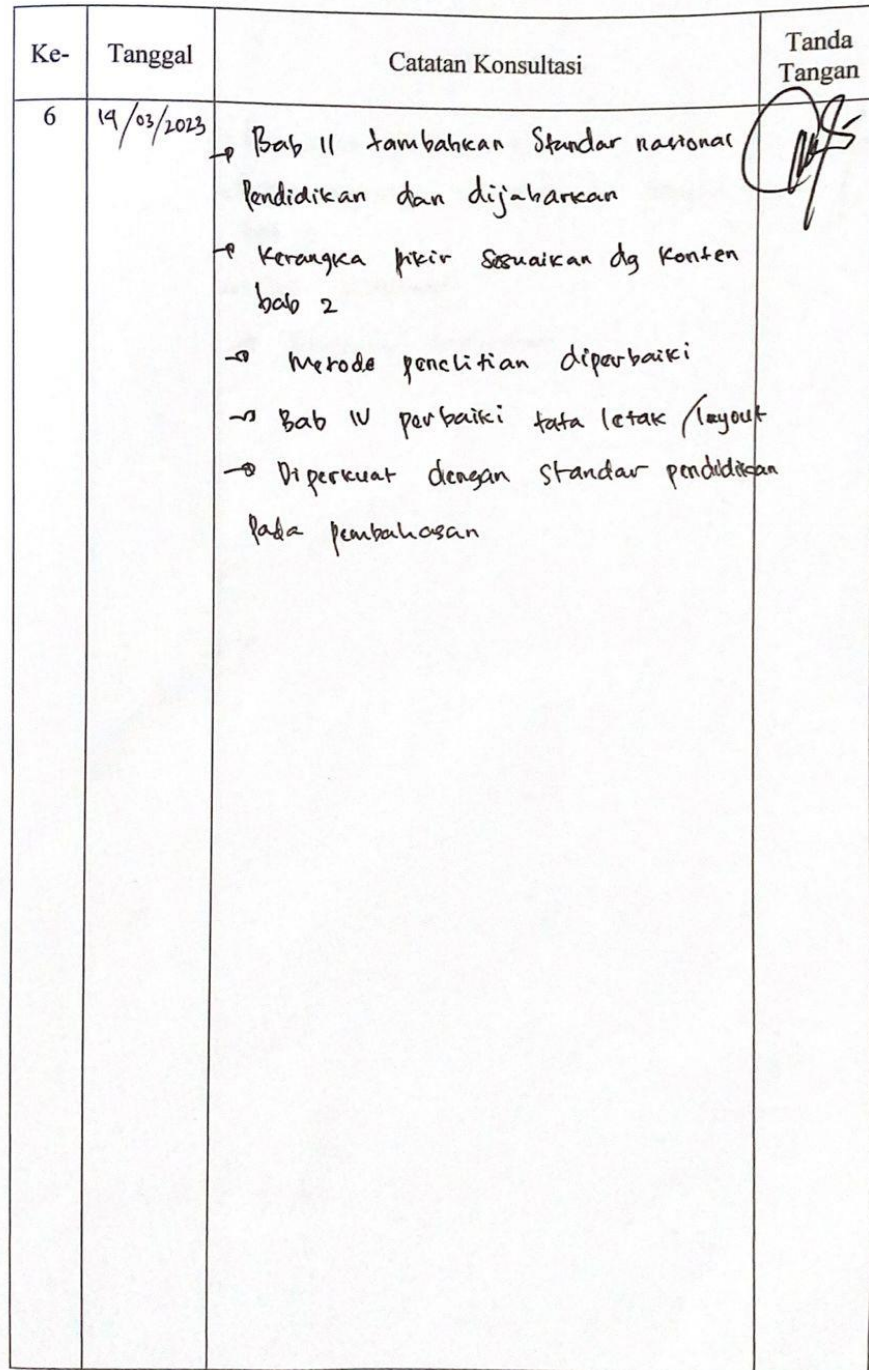 Ke- Tanggal Catatan Konsultasi Tanda Tangan
6 14/03/2023
→ Bab II tambahkan Standar nasional
Pendidikan dan dijabarkan
→ Kerangka pikir Sesuaikan dg Konten
bab 2
→ Metode penelitian diperbaiki
→ Bab IV perbaiki tata letak /layout
→ Diperkuat dengan standar pendidikan
Pada pembahasan